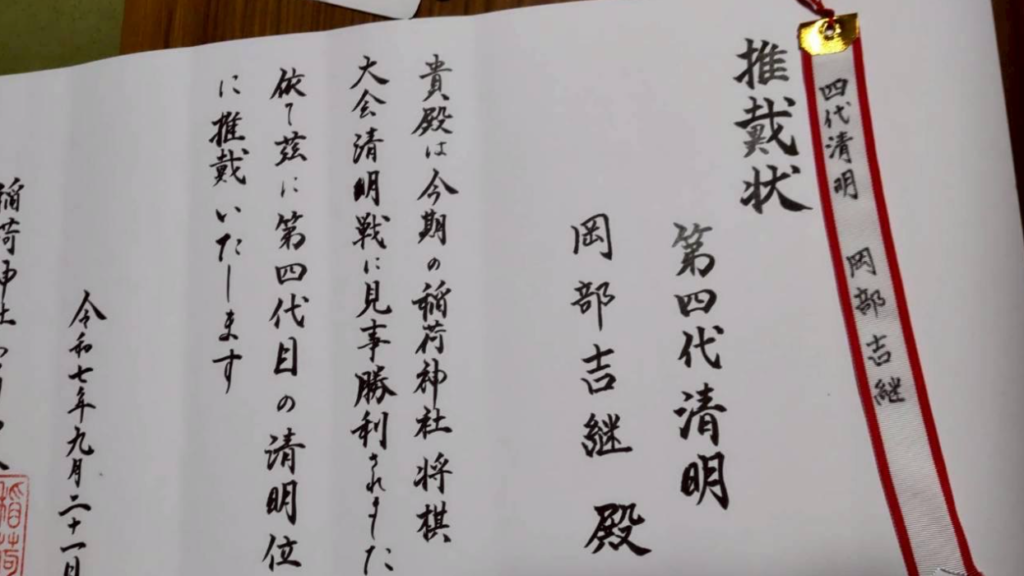 四代清明 岡部吉継
推戴状
第四代清明
岡部吉継 殿
貴殿は今期の稲荷神社将棋
大会清明戦に見事勝利されました
依て茲に第四代目の清明位
に推戴いたします
令和七年九月二十一日
稲荷神社
稲荷